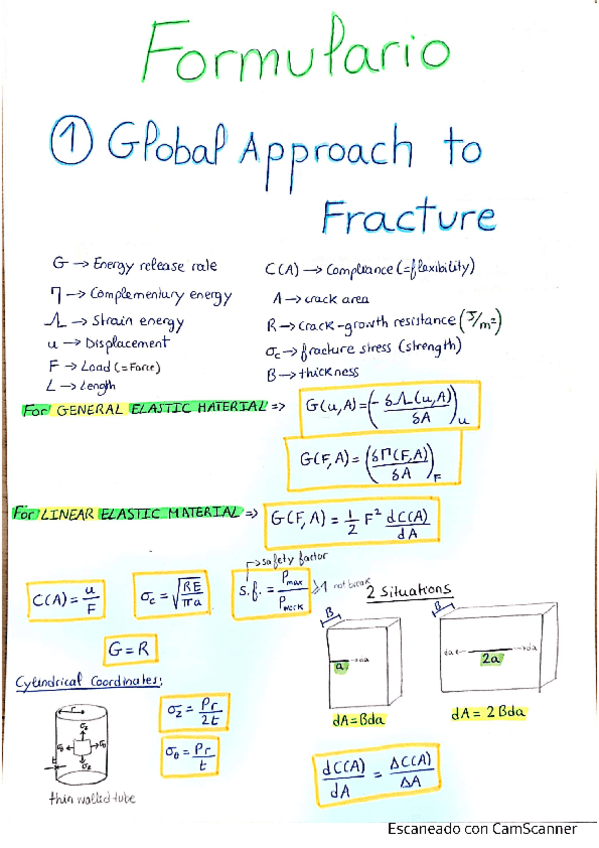 Formulario
① Global Approach to
Fracture
G → Energy release rate
η → Complementary energy
Λ → Strain energy
u → Displacement
F → Load (=Force)
L → Length
C(A) → Compliance (=flexibility)
A → crack area
R → crack-growth resistance (J/m²)
σc → fracture stress (strength)
B → thickness
For GENERAL ELASTIC MATERIAL => G(u,A)=(-δΛ(u,A)/δA)u
G(F,A)=(δΓ(F,A)/δA)F
For LINEAR ELASTIC MATERIAL => G(F,A)=1/2 F² dC(A)/dA
→ safety factor
C(A)=u/F σc=√(RE/πa) s.f.=Pmax/Pwork ≥1 not break
2 situations
G=R
B B
a da da 2a da
dA=Bda dA=2Bda
Cylindrical Coordinates:
σz=Pr/2t
σθ=Pr/t
r
σz
σθ σθ
t σz
thin walled tube
dC(A)/dA=ΔC(A)/ΔA
Escaneado con CamScanner